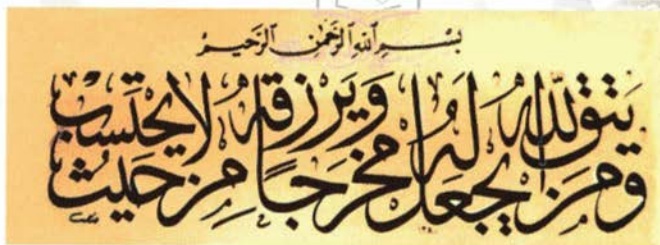 بِسْمِ اللَّهِ الرَّحْمَٰنِ الرَّحِيمِ
وَمَن يَتَّقِ اللَّهَ يَجْعَل لَّهُ مَخْرَجًا وَيَرْزُقْهُ مِنْ حَيْثُ لَا يَحْتَسِبُ